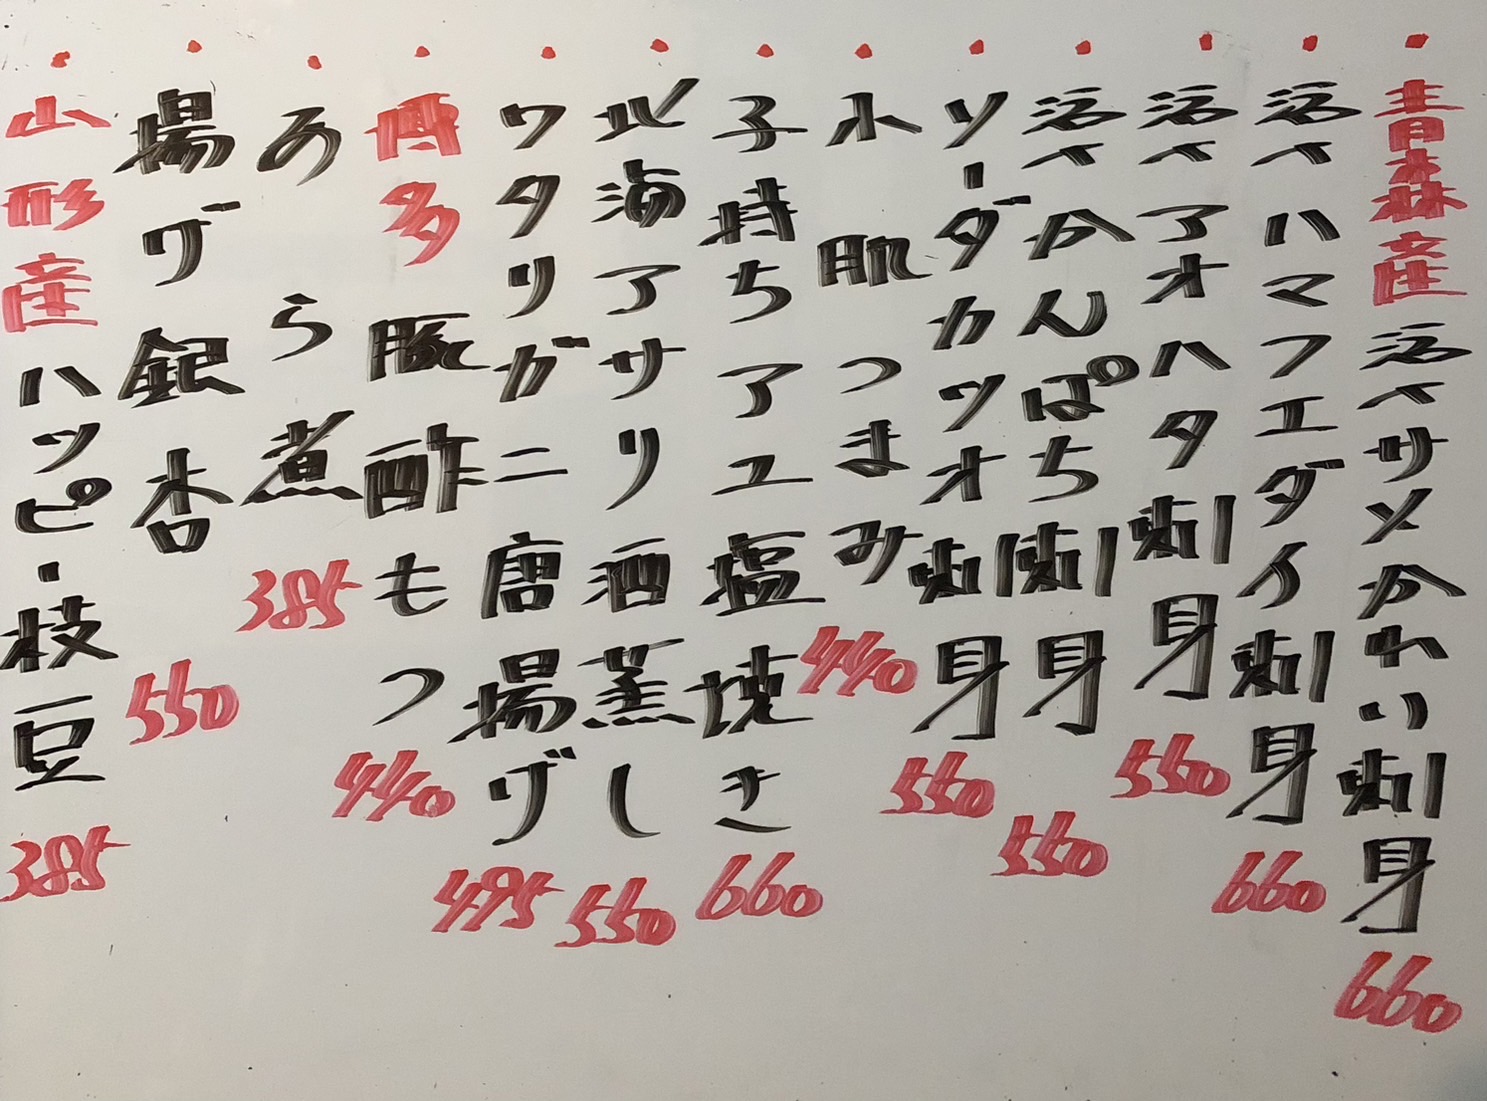 ・青森産活〆サメかわり刺身 660
・活〆ハマフエダイ刺身 660
・活〆アオハタ刺身 550
・活〆かんぱち刺身 550
・ソーダカツオ刺身 550
・小肌つまみ 440
・子持ちアユ塩焼き 660
・北海アサリ酒蒸し 550
・ワタリガニ唐揚げ 495
・博多豚酢もつ 440
・あら煮 385
・揚げ銀杏 550
・山形産ハッピー枝豆 385